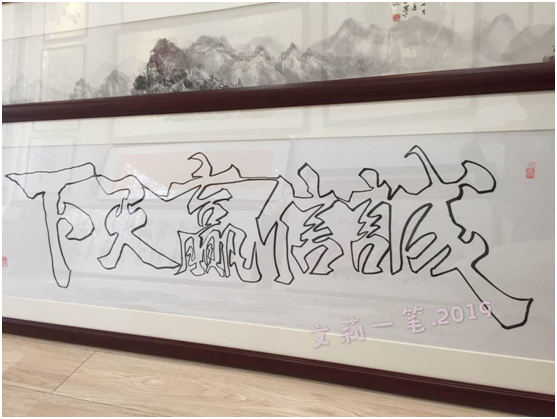 誠信贏天下
文莉一笔.2019